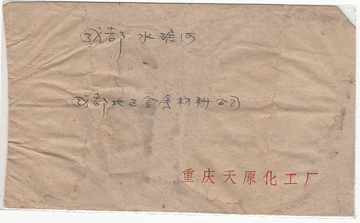 成都 水碾河
成都地区金属材料公司
重庆天原化工厂